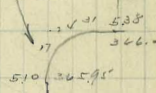 31 538
.17 366.
510 365.95